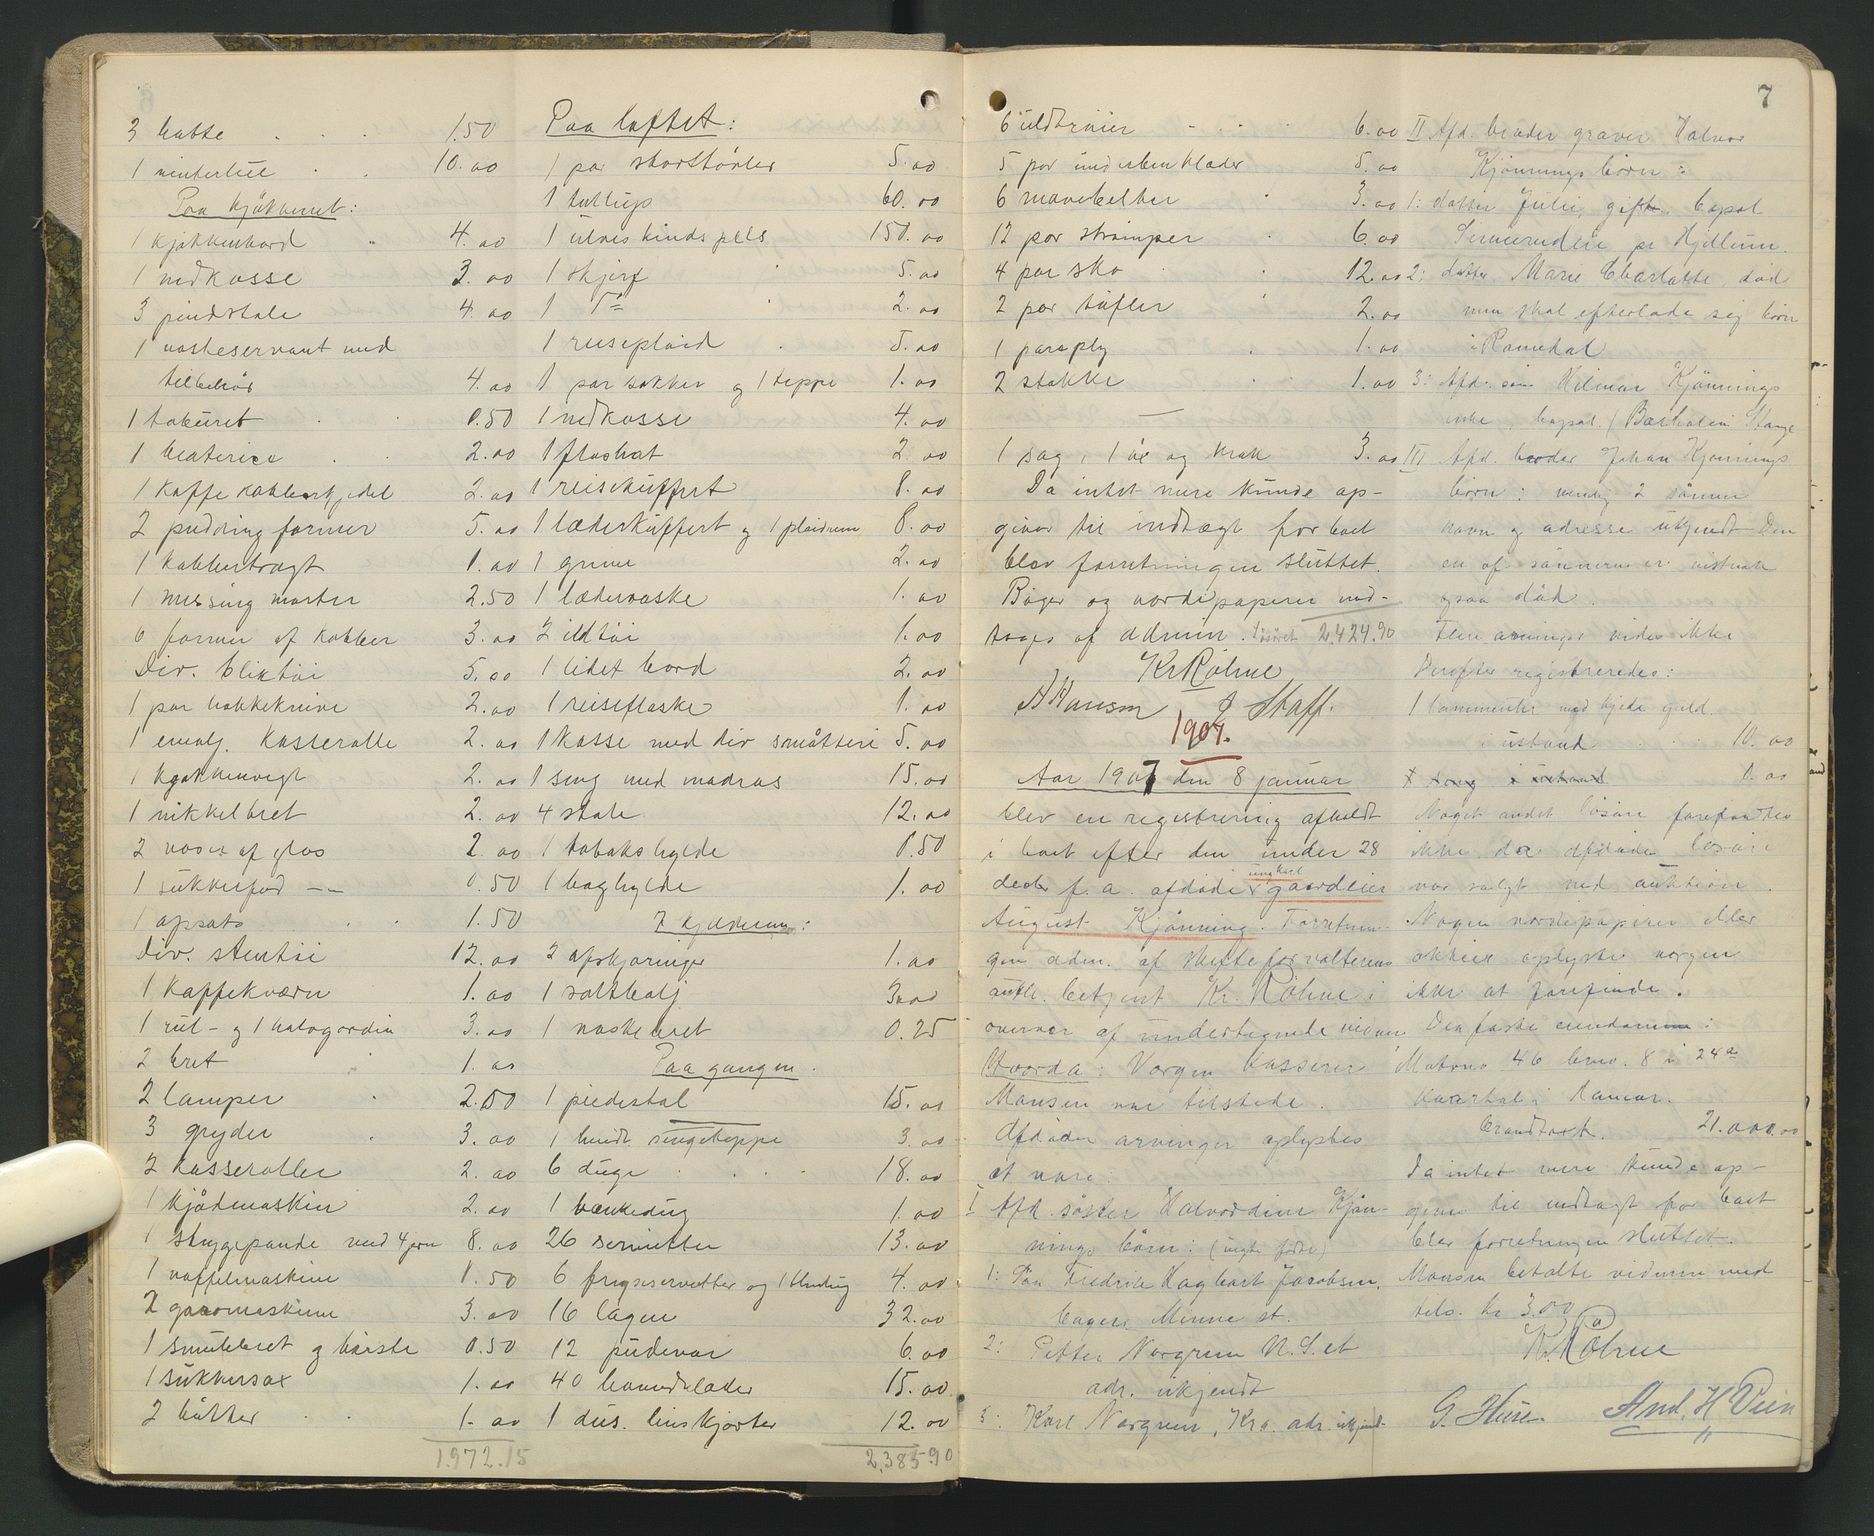 3 bøtte 1.50
1 vintertøi 10.00
Paa kjøkkenet:
1 kjøkkenbord 4.00
1 vedkasse 3.00
3 pindstole 4.00
1 vaskeservant med
tilbehør 4.00
1 taburet 0.50
1 2.00
1 kaffe kobberkjedel 2.00
2 pudding former 5.00
1 kobbertragt 1.00
1 messing morter 2.50
6 former af kobber 3.00
Div. bliktøi 5.00
1 par hakkeknive 2.00
1 emalj. kasserolle 2.00
1 kjøkkenvegt 2.00
1 nikkelbret 2.00
2 vaser af glas 2.00
1 sukkerfad 0.50
1 opsats 1.50
Div. stentøi 12.00
1 kaffekværn 1.00
1 rul- og 1 halvgardin 3.00
2 bret 1.00
2 lamper 2.50
3 gryder 3.00
2 kasseroller 2.00
1 kjødmaskin 2.00
1 stegepande med 4 8.00
1 vaffelmaskine 1.50
2 3.00
1 smultbret og børste 0.50
1 sukkersax 1.00
2 bøtter 1.00
1972.15
Paa loftet:
1 par skostøvler 5.00
1 60.00
1 ulveskinds pels 150.00
1 skjerf 5.00
1 Do 2.00
1 reiseplaid 5.00
1 par sokker og 1 teppe 1.00
1 vedkasse 4.00
1 floshat 2.00
1 reisekuffert 8.00
1 læderkuffert og 1 plaidrem 8.00
1 grime 2.00
1 lædervaske 1.00
2 ildtøi 1.00
1 lidet bord 2.00
1 reiseflaske 1.00
1 kasse med div småtteri 5.00
1 seng med madras 15.00
4 stole 12.00
1 tobakshylde 0.50
1 boghylde 1.00
I kjelderen:
2 afskjæringer 1.00
1 saltbalj 3.00
1 vaskebret 0.25
Paa gangen.
1 piedestal 15.00
1 hvidt sengeteppe 3.00
6 duge 18.00
1 bænkedug 1.00
26 servietter 13.00
6 frugtservietter og 1 4.00
16 lagen 32.00
12 pudevar 6.00
40 haandklæder 15.00
1 dus. linskjorter 12.00
2,385.90
6 uldtrøier 6.00
5 par underbenklæder 5.00
6 mavebelter 3.00
12 par strømper 6.00
4 par sko 12.00
2 par tøfler 2.00
1 paraply 1.00
2 stokke 1.00
1 sag, 1 øx og krak 3.00
Da intet mere kunde op-
gives til indtægt for boet
blev forretningen sluttet.
Bøger og værdipapirer mod-
tages af admin. Løsøret 2.424.90
Kr Røhne
A Hansen J Staff.
1907.
Aar 1907 den 8 januar
blev en registrering afholdt
i boet efter den under 28
decbr f. a. afdøde ungkarl gaardeier
August Kjønning. Forretnin-
gen adm. af skifteforvalterens
autb. betjent Kr. Røhne i
overvær af undertegnede vidner
Hvorda: Vorgen kasserer
Hansen var tilstede.
Afdødes arvinger oplystes
at være:
I Afd. søster Halvordine Kjøn-
nings børn: (uegte fødte)
1: Søn Fredrik Hagbart Jacobsen,
bager, Minne st.
2: Petter Norgren N. S. et
adr. ukjendt
3: Karl Norgren, Kra. adr. ukjendt
7
II Afd. broder graver Halvor
Kjønnings børn:
1: datter Julie, gift, bopæl
pr Hjellum.
2: datter Marie Charlotte, død
men skal efterlade sig børn
i Romedal
3: Afd. søn Hilmar Kjønnings
enke, bopæl. Stange
III Afd. broder Johan Kjønnings
børn: nemlig 2 sønner
navn og adresse ukjendt Den
en af sønnerne er vistnok
ogsaa død.
Flere arvinger vides ikke
Derefter registreredes:
1 lommeuhr med kjede guld.
i ustand 10.00
1 seng i ustand 1.00
Noget andet løsøre forefandtes
ikke da afdødes løsøre
var solgt ved auktion.
Nogen værdipapirer eller
aktier oplyste vorgen
ikke at forefinde.
Den faste eiendom:
Matrno 46 brno. 8 i 24a
kvartal i Hamar.
brandtaxt. 21.000.00
Da intet mere kunde op-
gives til indtægt for boet
blev forretningen sluttet.
Hansen betalte vidnerne med
tils. kr 3.00
Kr. Røhne
G. Huse. And. H Vien